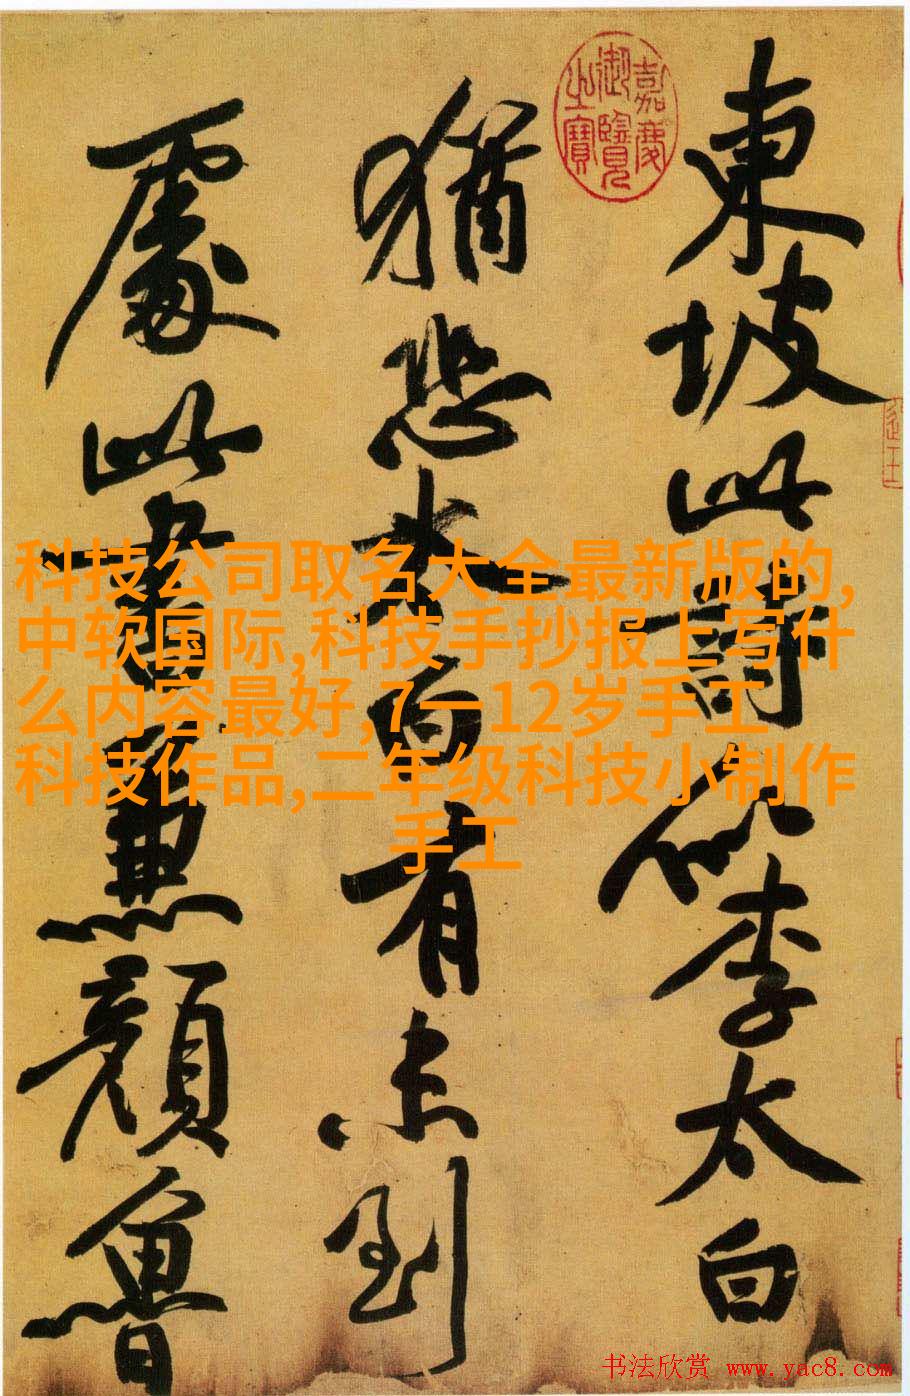 東坡此詩似李太白
猶恐太白有未到
處此書兼顏魯
嘉慶
御覽
之寶
科技公司取名大全最新版的,
中软国际,科技手抄报上写什
么内容最好,7一12岁手工
科技作品,二年级科技小制作
手工
书法欣赏 www.yac8.com